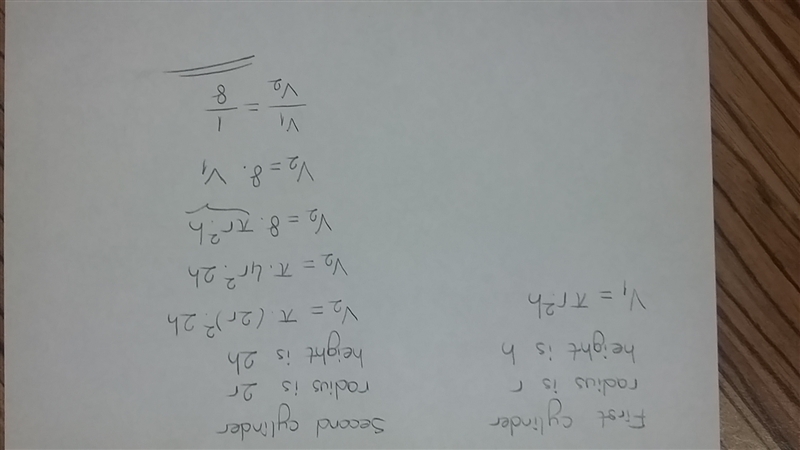 First cylinder
radius is r
height is h
V₁ = πr²h
Second cylinder
radius is 2r
height is 2h
V₂ = π.(2r)².2h
V₂ = π.4r².2h
V₂ = 8.πr²h
V₂ = 8. V₁
V₁/V₂ = 1/8